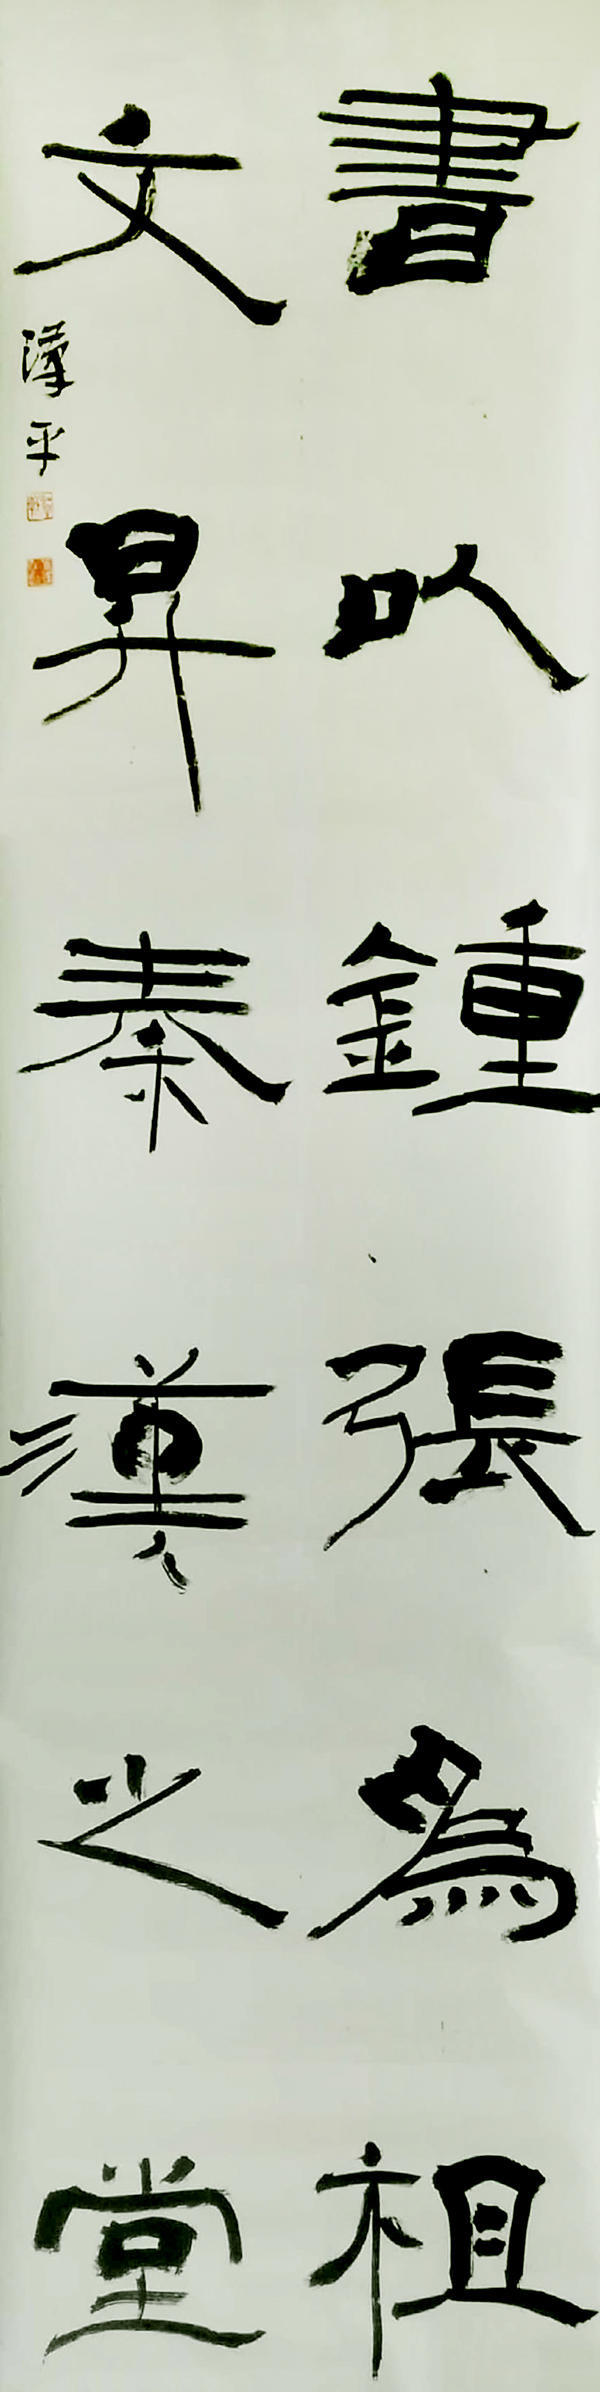 書以鍾張為祖
文昇秦漢之堂
平